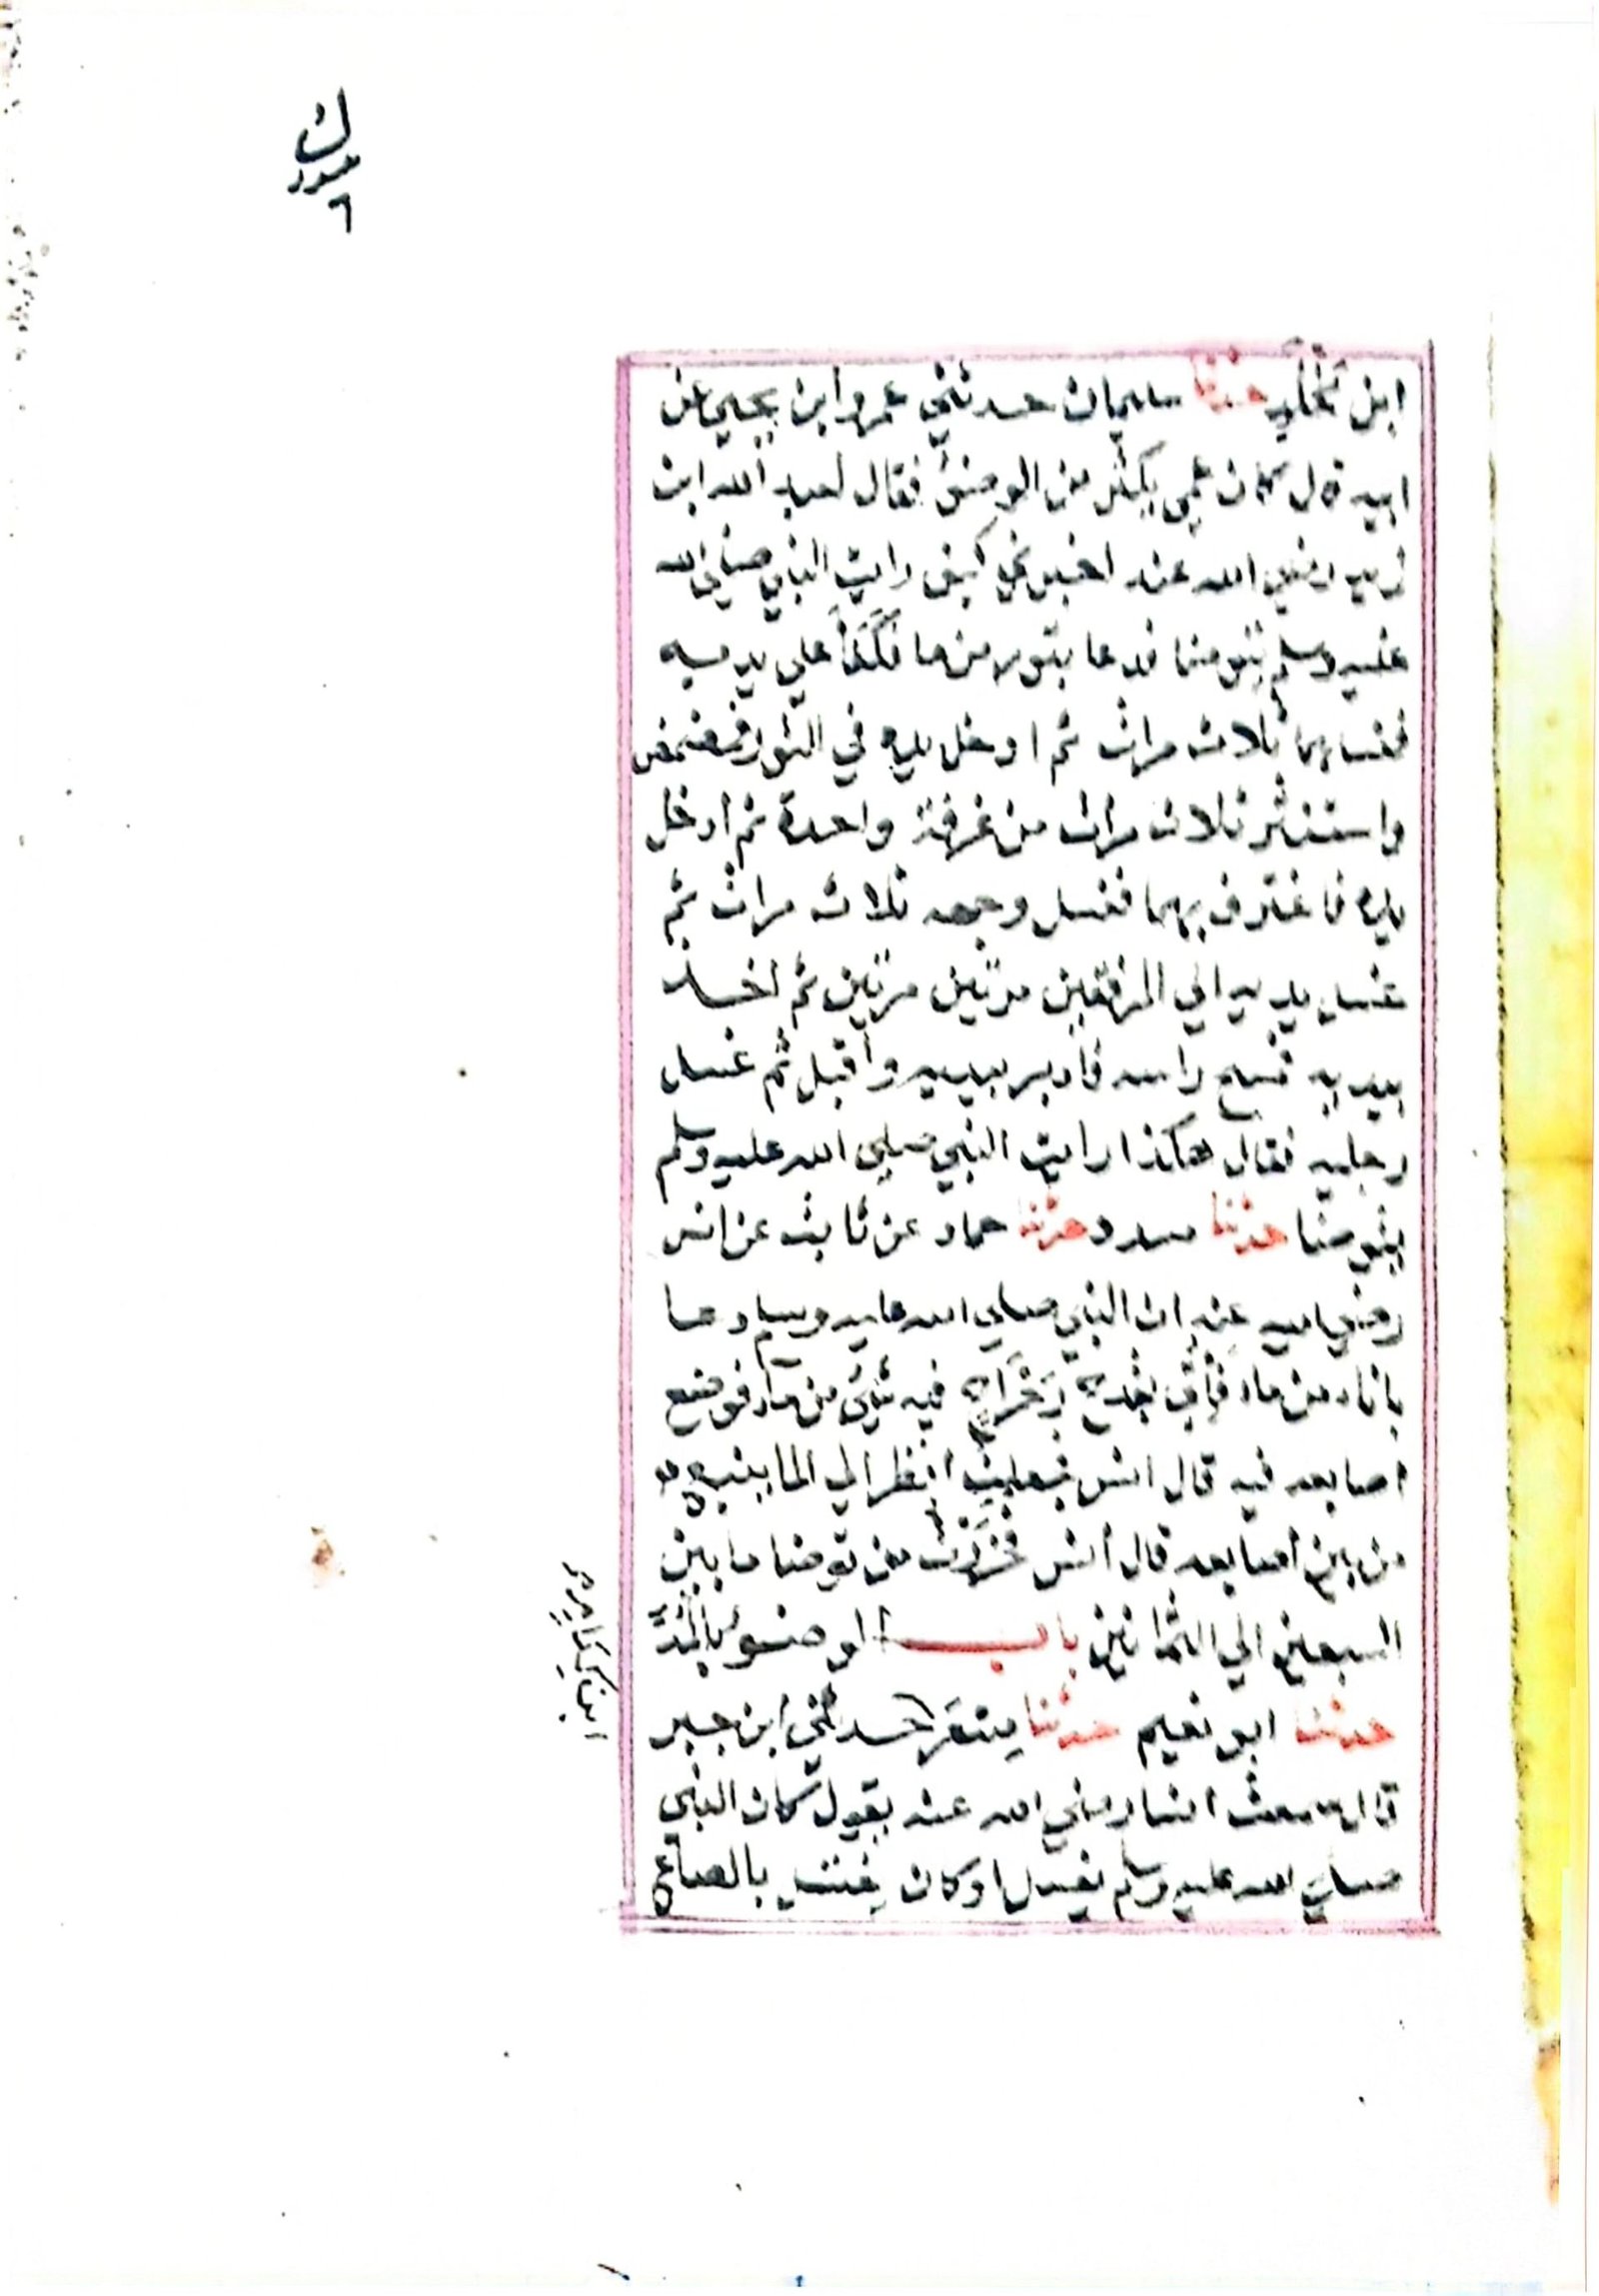 ابن مَخْلَدٍ حدثنا سليمان حدثني عمرو ابن يحيي عن
ابيه قال كان عمي يكثر من الوضوء فقال لعبد الله ابن
زيد رضي الله عنه اخبرني كيف رايت النبي صلي الله
عليه وسلم يتوضا فدعا بتور من ما فكَفَأَ علي يديه
فغسلهما ثلاث مرات ثم ادخل يده في التور فمضمض
واستنثر ثلاث مرات من غرفة واحدة ثم ادخل
يده فاغترف بهما فغسل وجهه ثلاث مرات ثم
غسل يديه الي المرفقين مرتين مرتين ثم اخذ
بيديه فمسح راسه فادبر بيديه وأقبل ثم غسل
رجليه فقال هكذا رايت النبي صلي الله عليه وسلم
يتوضا حدثنا مسدد حدثنا حماد عن ثابت عن انس
رضي الله عنه ان النبي صلي الله عليه وسلم دعا
باناء من ماء فأتي بقدح رَحْرَاحٍ فيه شيئ من ماء فوضع
اصابعه فيه قال انس فجعلت انظر الي الما ينبع
من بين اصابعه قال انس فحَزَرْتُ من توضا ما بين
السبعين الي الثمانين باب الوضوء بالمُدِّ
حدثنا ابو نعيم حدثنا مِسْعَر حدثني ابن جبر
قال سمعت انسا رضي الله عنه يقول كان النبي
صلي الله عليه وسلم يغسل او كان يغتسل بالصاع